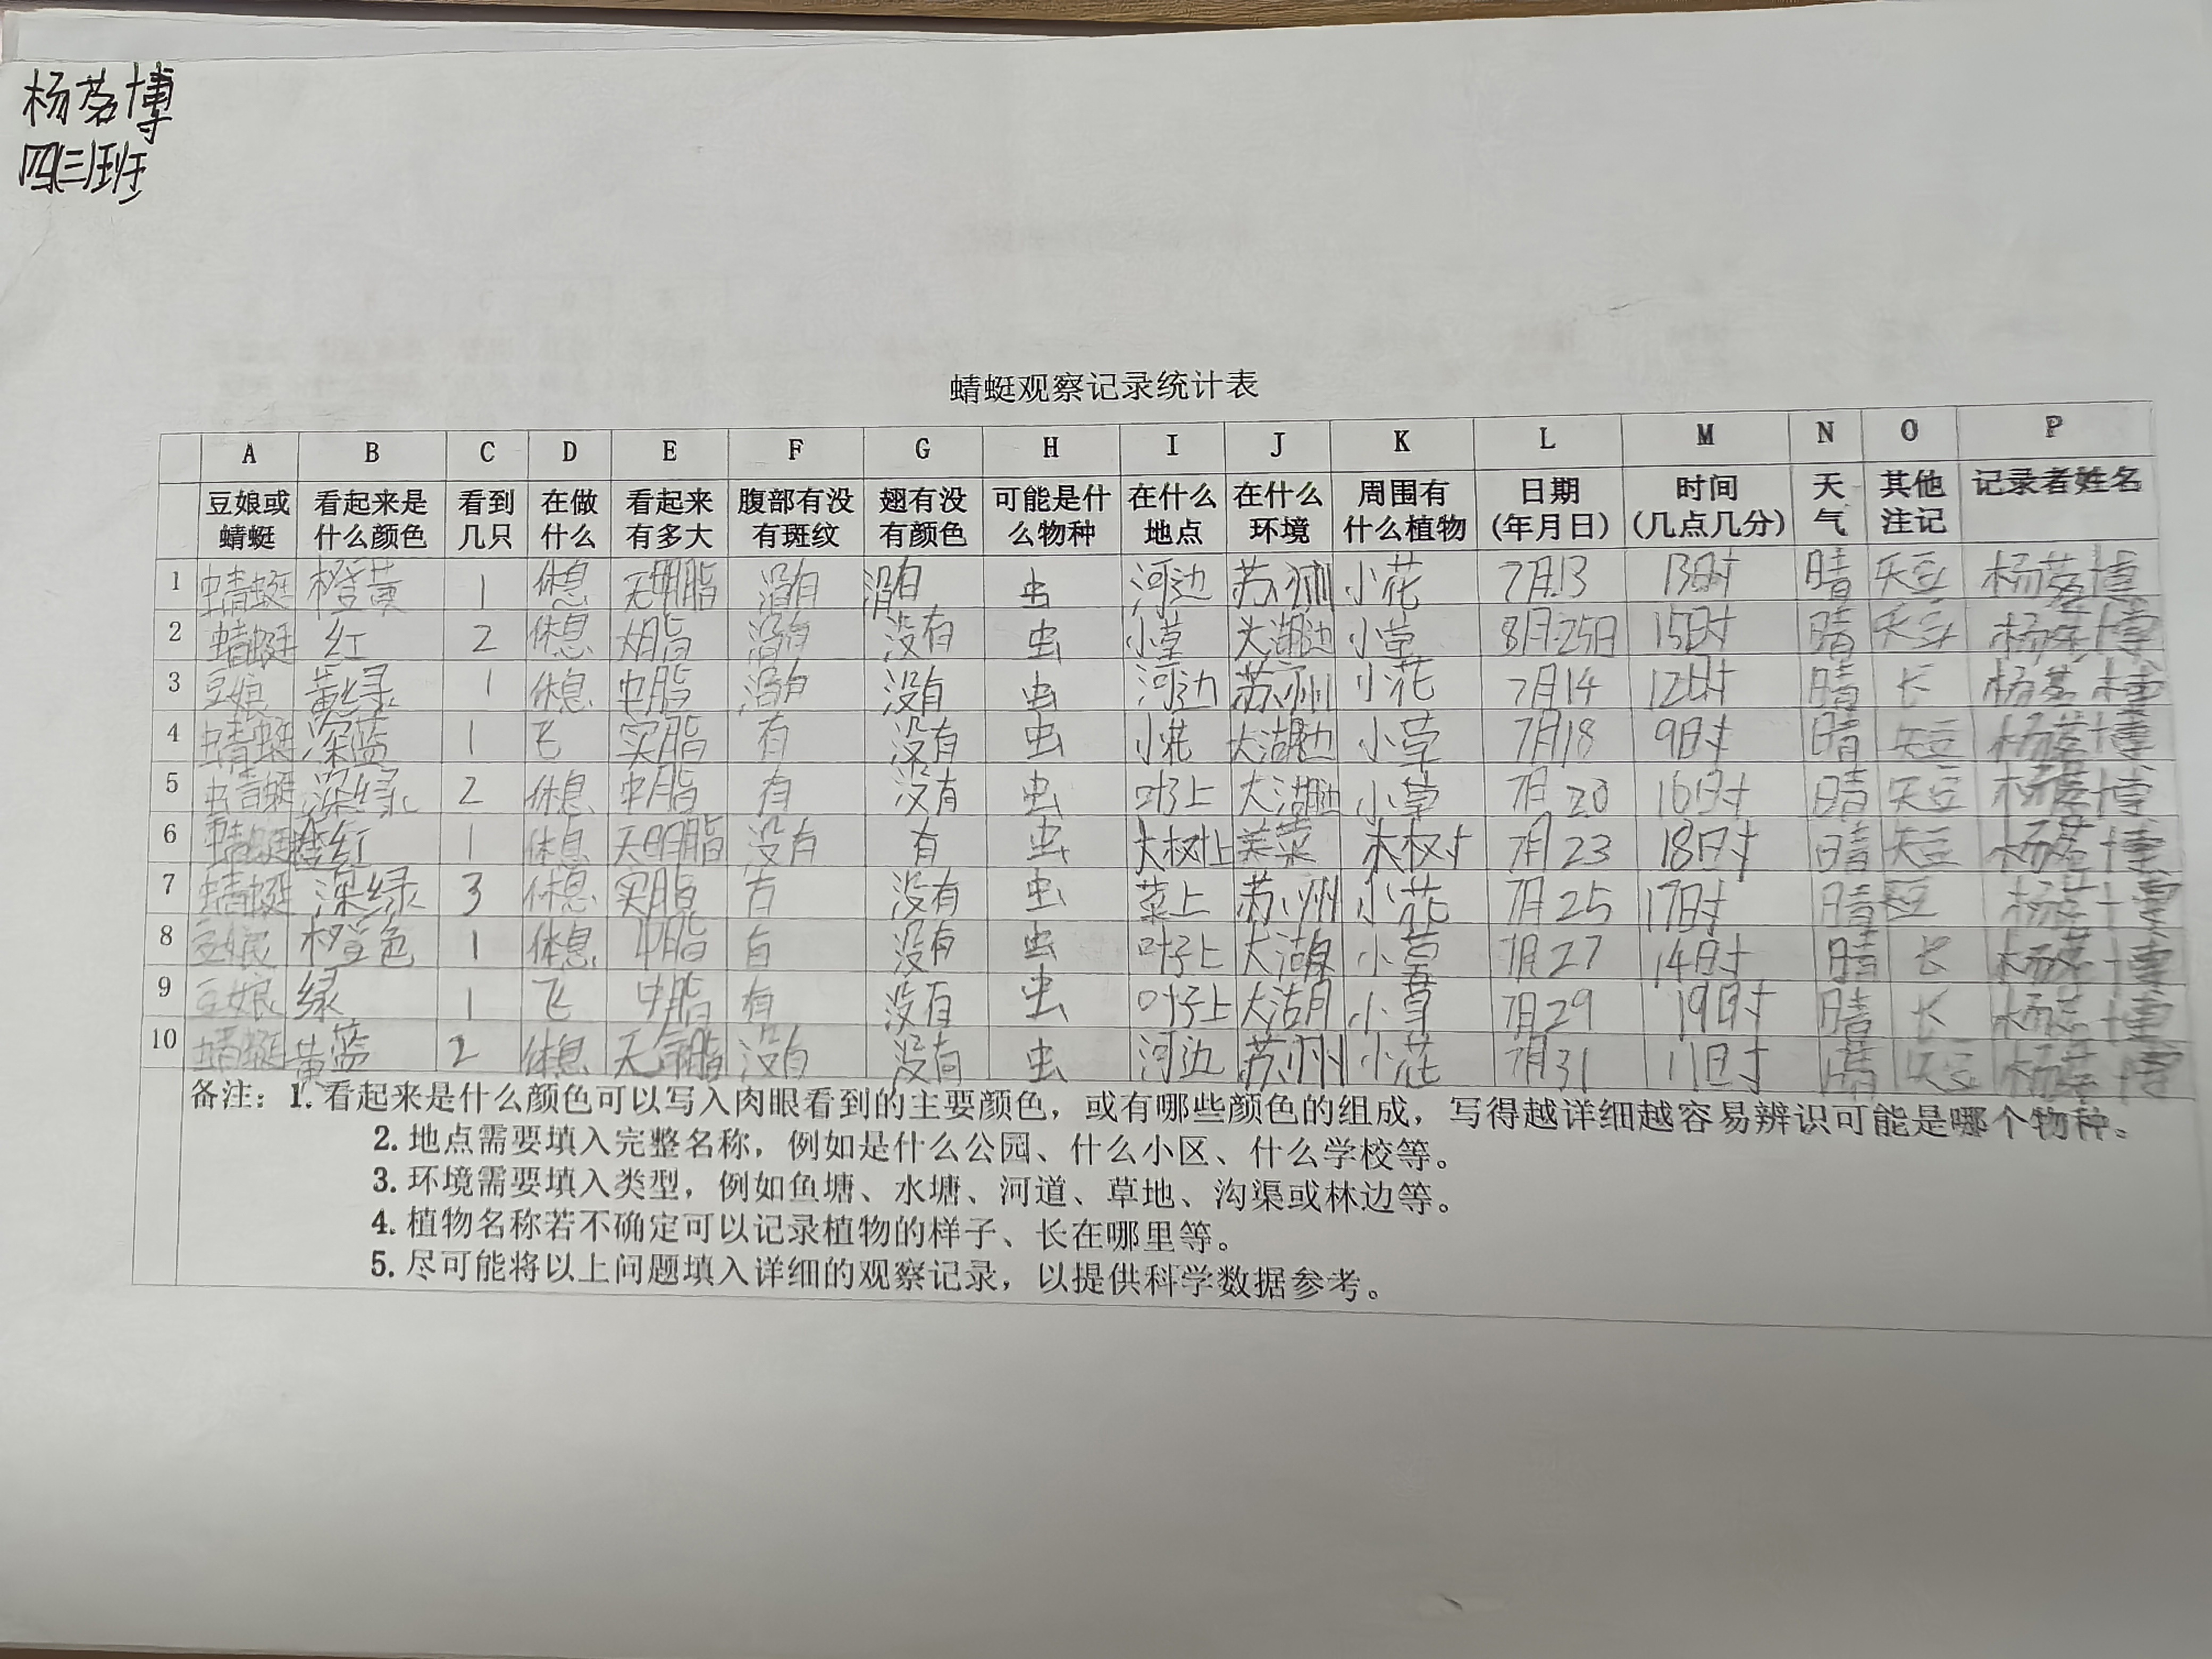 杨茗博
四(三)班
蜻蜓观察记录统计表
A B C D E F G H I J K L M N O P
豆娘或蜻蜓 看起来是什么颜色 看到几只 在做什么 看起来有多大 腹部有没有斑纹 翅有没有颜色 可能是什么物种 在什么地点 在什么环境 周围有什么植物 日期(年月日) 时间(几点几分) 天气 其他注记 记录者姓名
1 蜻蜓 橙黄 1 休息 没有 没有 虫 河边 苏州 小花 7月13 13时 晴 杨茗博
2 蜻蜓 红 2 休息 没有 没有 虫 小草 小草 8月25日 15时 晴 杨茗博
3 豆娘 黄绿 1 休息 中脂 没有 没有 虫 河边 苏州 小花 7月14 12时 晴 长 杨茗博
4 蜻蜓 深蓝 1 飞 实脂 有 没有 虫 小花 大湖边 小草 7月18 9时 晴 杨茗博
5 蜻蜓 深绿 2 休息 中脂 有 没有 虫 叶上 大湖边 小草 7月20 16时 晴 杨茗博
6 蜻蜓 橙红 1 休息 没有 有 虫 大树上 7月23 18时 晴 杨茗博
7 蜻蜓 深绿 3 休息 实脂 有 没有 虫 菜上 苏州 小花 7月25 17时 晴 杨茗博
8 豆娘 橙色 1 休息 中脂 有 没有 虫 叶子上 小草 7月27 14时 晴 长 杨茗博
9 豆娘 绿 1 飞 中脂 有 没有 虫 叶子上 小草 7月29 19时 晴 长 杨茗博
10 蜻蜓 黄蓝 2 休息 没有 没有 虫 河边 苏州 小花 7月31 11时 晴 杨茗博
备注：1. 看起来是什么颜色可以写入肉眼看到的主要颜色，或有哪些颜色的组成，写得越详细越容易辨识可能是哪个物种。
2. 地点需要填入完整名称，例如是什么公园、什么小区、什么学校等。
3. 环境需要填入类型，例如鱼塘、水塘、河道、草地、沟渠或林边等。
4. 植物名称若不确定可以记录植物的样子、长在哪里等。
5. 尽可能将以上问题填入详细的观察记录，以提供科学数据参考。